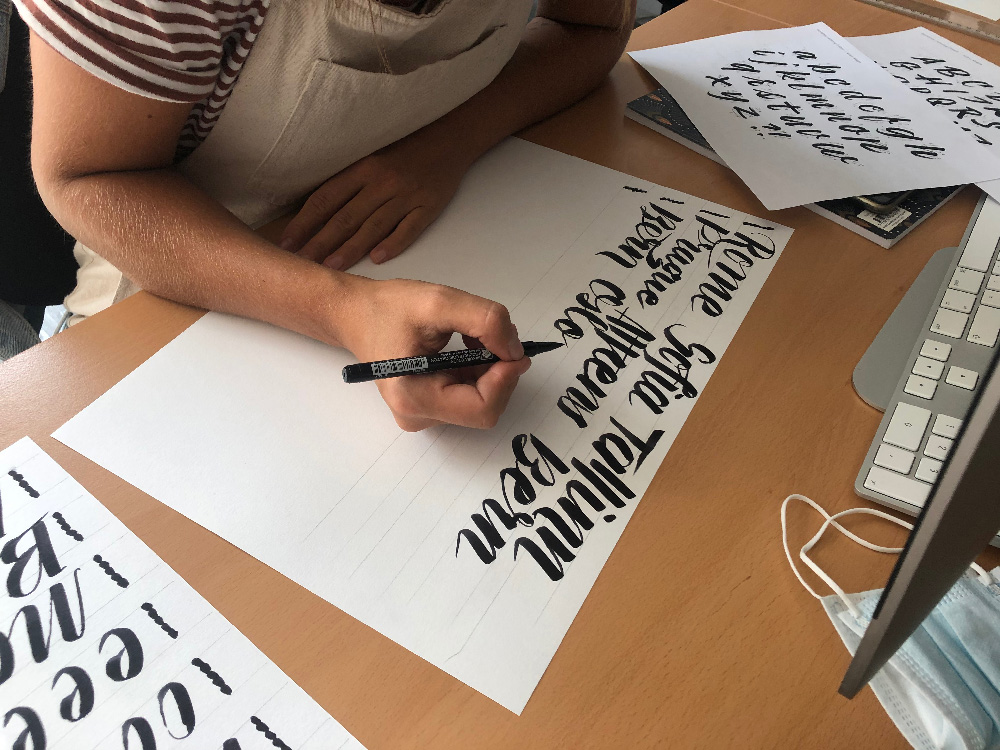 Rome Sofia Tallinn
Prague Athens Bern
Bern Oslo
a b c d e f g h
i j k l m n o
q r s t u v w
x y z ? !
A B C
B
ee